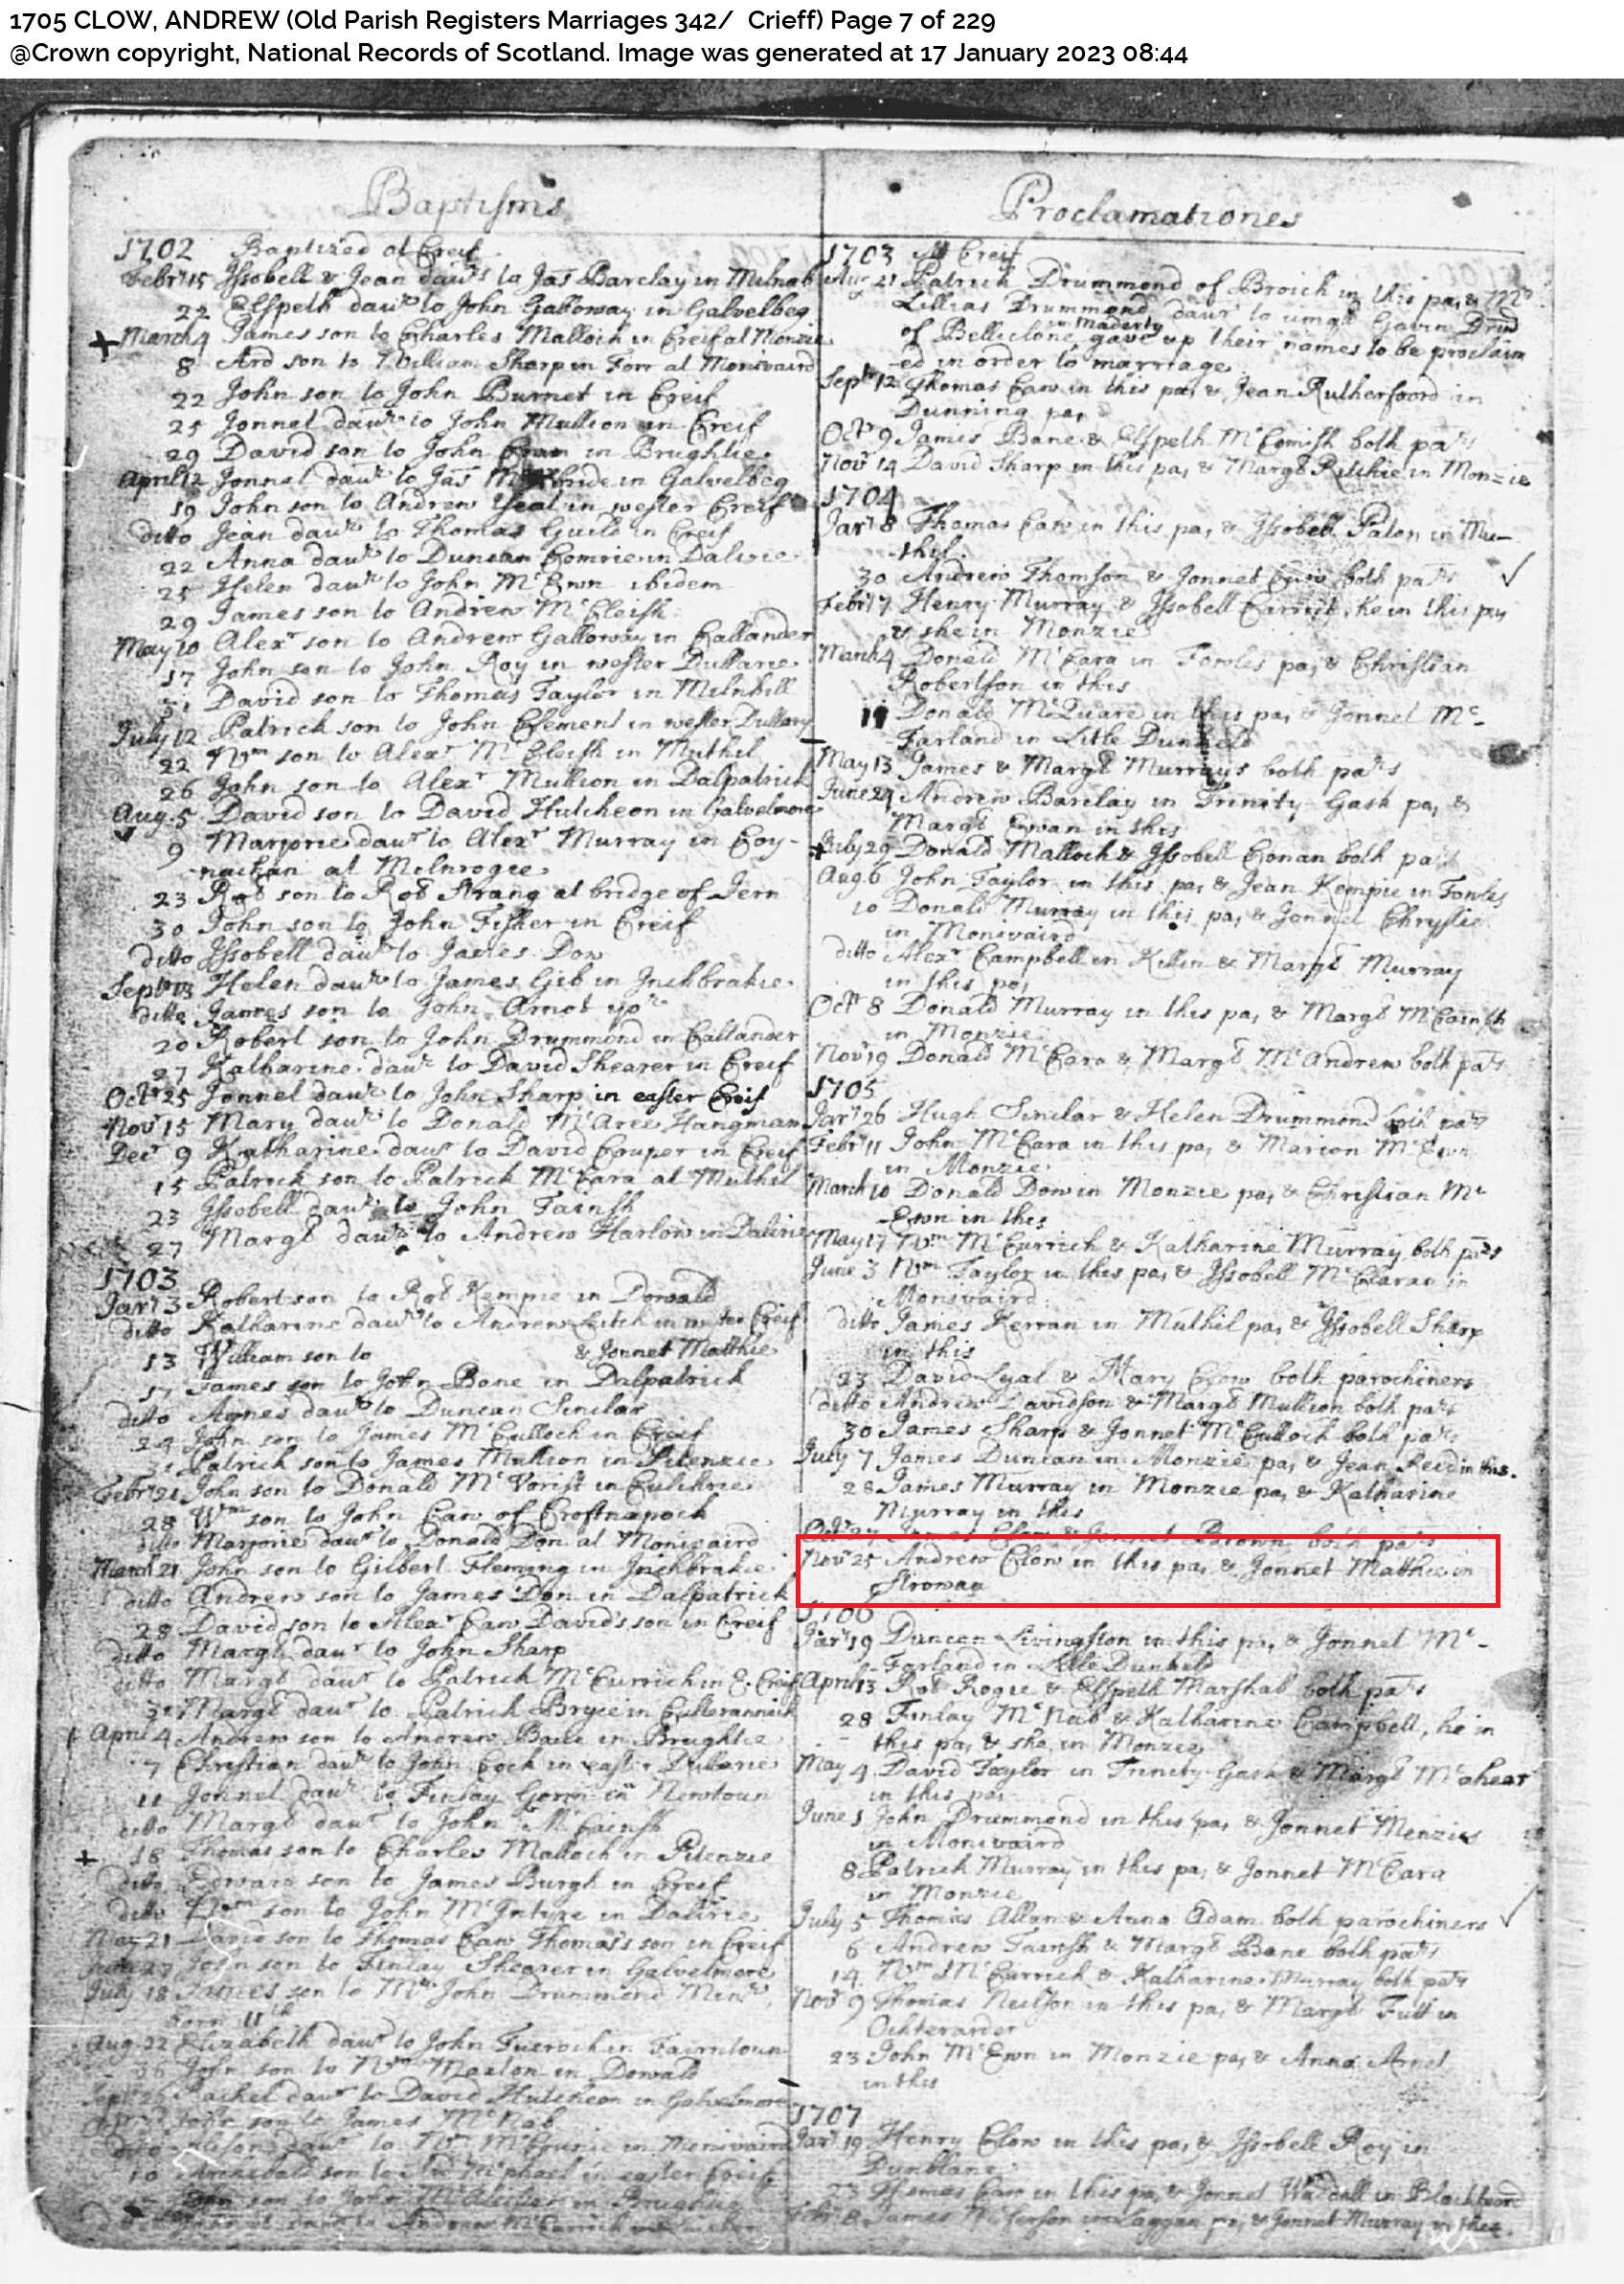 1705 CLOW, ANDREW (Old Parish Registers Marriages 342/ Crieff) Page 7 of 229
@Crown copyright, National Records of Scotland. Image was generated at 17 January 2023 08:44
Baptisms
1702 Baptized at Creif
Febr 15 Issobell & Jean dawrs to Jas Barclay in Milnab
22 Elspeth dawr to John Galloway in Galvelbeg
March 4 James son to Charles Malloch in Creif at Monzie
8 Ard son to William Sharp in Forr at Monivaird
22 John son to John Burnet in Creif
25 Jonnet dawr to John Mullion in Creif
29 David son to John in Brughlie
April 12 Jonnet dawr to Jas in Galvelbeg
19 John son to Andrew in wester Creif
ditto Jean dawr to Thomas Guild in Creif
22 Anna dawr to Duncan Comrie in Dalirie
25 Helen dawr to John McEwn ibidem
29 James son to Andrew McCleish
May 10 Alexr son to Andrew Galloway in Callander
17 John son to John Roy in wester Dullarie
31 David son to Thomas Taylor in Milnhill
July 12 Patrick son to John Clement in wester Dullary
22 Wm son to Alexr McCleish in Muthil
26 John son to Alexr Mullion in Dalpatrick
Aug. 5 David son to David Hutcheon in Galvelmore
9 Marjorie dawr to Alexr Murray in Coy-
nachan at Milnrogie
23 Rob son to Rob Strang at bridge of Jern
30 John son to John Fisher in Creif
ditto Issobell dawr to James Dow
Septr 13 Helen dawr to James Geb in Inchbrakie
ditto James son to John Arnot yor
20 Robert son to John Drummond in Callander
27 Katharine dawr to David Shearer in Creif
Octr 25 Jonnet dawr to John Sharp in easter Creif
Novr 15 Mary dawr to Donald McAree Hangman
Decr 9 Katharine dawr to David Couper in Creif
15 Patrick son to Patrick McCara at Muthil
23 Issobell dawr to John Tainsh
27 Margt dawr to Andrew Harlow in Dalirie
1703
Jarr 3 Robert son to Rob Kempie in Dowald
ditto Katharine dawr to Andrew Leitch in wester Creif
13 William son to & Jonnet Matthie
17 James son to John Bane in Dalpatrick
ditto Agnes dawr to Duncan Sinclar
24 John son to James McCulloch in Creif
31 Patrick son to James Mullion in Pitenzie
Febr 21 John son to Donald McVorist in Culchrie
28 Wm son to John Caw of Croftnapoch
ditto Marjorie dawr to Donald Don at Monivaird
March 21 John son to Gilbert Fleming in Inchbrakie
ditto Andrew son to James Don in Dalpatrick
28 David son to Alexr Caw David's son in Creif
ditto Margt dawr to John Sharp
ditto Margt dawr to Patrick McCurrich in E. Creif
31 Margt dawr to Patrick Bryce in
April 4 Andrew son to Andrew Baile in Brughlie
7 Christian dawr to John Cock in easter Dullarie
11 Jonnet dawr to Finlay Gorm in Newtoun
ditto Margt dawr to John McCainsh
18 Thomas son to Charles Malloch in Pitenzie
ditto Edward son to James Burgh in Creif
ditto Wm son to John McIntyre in Dalirie
May 21 David son to Thomas Caw Thomas's son in Creif
June 27 John son to Finlay Shearer in Galvelmore
July 18 James son to Mr John Drummond Minr
born 11th
Aug. 22 Elizabeth dawr to John in Fairntoun
John son to Wm in Dowald
Septr Rachel dawr to David Hutcheon in Galvelmore
John son to James McNab
ditto dawr to Wm in Monivaird
10 Archibald son to in easter Creif
son to John in Brughlie
dawr to Andrew
Proclamationes
1703 At Creif
Aug 21 Patrick Drummond of Broich in this pa, & Mrs
Lillias Drummond dawr to umql Gavin Drmd
of Belliclone in Maderty gave up their names to be proclaim
ed in order to marriage
Septr 12 Thomas Caw in this pa, & Jean Rutherfoord in
Dunning pa,
Octr 9 James Bane & Elspeth McComish both pars
Novr 14 David Sharp in this pa, & Margt Ritchie in Monzie
1704
Jarr 8 Thomas Caw in this pa, & Issobell Paton in Mu-
thil
30 Andrew Thomson & Jonnet both pars
Febr 17 Henry Murray & Issobell, he in this pa
& she in Monzie
March 4 Donald McCara in Fowles pa, & Christian
Robertson in this
19 Donald McQuare in this pa, & Jonnet Mc-
Farland in Litle Dunkeld
May 13 James & Margt Murrays both pars
June 24 Andrew Barclay in Trinity-Gask pa, &
Margt Ewan in this
July 29 Donald Malloch & Issobell Conan both pars
Aug. 6 John Taylor in this pa, & Jean Kempie in Fowles
10 Donald Murray in this pa, & Jonnet Chrystie
in Monivaird
ditto Alexr Campbell in Killin & Margt Murray
in this pa,
Octr 8 Donald Murray in this pa, & Margt McCainsh
in Monzie
Novr 19 Donald McCara & Margt McAndrew both pars
1705
Jarr 26 Hugh Sinclar & Helen Drummond both pars
Febr 11 John McCara in this pa, & Marion McEwn
in Monzie
March 10 Donald Dow in Monzie pa, & Christian Mc
-Ewn in this
May 17 Wm McCurrich & Katharine Murray both pars
June 3 Wm Taylor in this pa, & Issobell McClaran in
Monivaird
ditto James Kerran in Muthil pa, & Issobell Sharp
in this
23 David Lyal & Mary Clow both parochiners
ditto Andrew Davidson & Margt Mullion both pars
30 James Sharp & Jonnet McCulloch both pars
July 7 James Duncan in Monzie pa, & Jean Reid in this.
28 James Murray in Monzie pa, & Katharine
Murray in this
Octr 27 James Clow & Jonnet Brown both pars
Novr 25 Andrew Clow in this pa, & Jonnet Matthie in
Strowan
1706
Jarr 19 Duncan Livingston in this pa, & Jonnet Mc-
Farland in Litle Dunkeld
April 13 Rob Rogie & Elspeth Marshal both pars
28 Finlay McNab & Katharine Campbell, he in
this pa, & she in Monzie
May 4 David Taylor in Trinity-Gask & Margt
in this pa,
June 1 John Drummond in this pa, & Jonnet Menzies
in Monivaird
8 Patrick Murray in this pa, & Jonnet McCara
in Monzie
July 5 Thomas Allan & Anna Adam both parochiners
6 Andrew Tainsh & Margt Bane both pars
14 Wm McCurrich & Katharine Murray both pars
Novr 9 Thomas Neilson in this pa, & Margt in
Ochterarder
23 John McEwn in Monzie pa, & Anna Arnot
in this
1707
Jarr 19 Henry Clow in this pa, & Issobell Roy in
Dunblane
23 Thomas Caw in this pa, & Jonnet Waddell in Blackfoord
Febr 8 James in Laggan pa, & Jonnet Murray in this